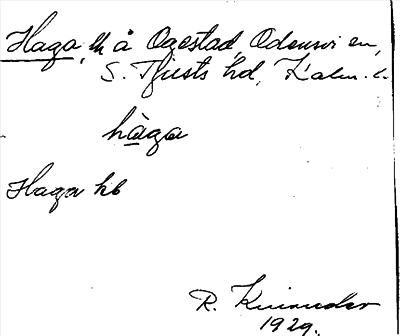 Haga, lh å Ogestad, Odensvi sn,
S. Tjusts hd, Kalm. l.
hàga
Haga hb
R.
1929.